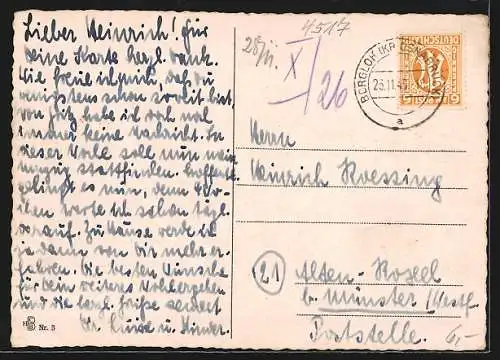 Lieber Heinrich! Für
deine Karte herzl. Dank.
Wie freue ich mich, daß du
wenigstens schon soweit bist,
von Fritz habe ich noch
immer keine Nachricht. In
dieser Woche soll nun mein
Umzug stattfinden. Hoffentl.
gelingt es nun, denn
warte ich schon tägl.
darauf. Zu Hause werde ich
ja dann von dir mehr er-
fahren. Die besten Wünsche
für dein weiteres Wohlergehen
und die herzl. Grüße sendet
Luise u. Kinder.
HB Nr. 3
28/11.
4517
X/26
BERGLOH (KR OSNABRÜCK)
25.11.45
a
DEUTSCHLAND
6
Herrn
Heinrich Roessing
(21) Alten-Roxel
b. Münster /Westf.
Poststelle.
6,-